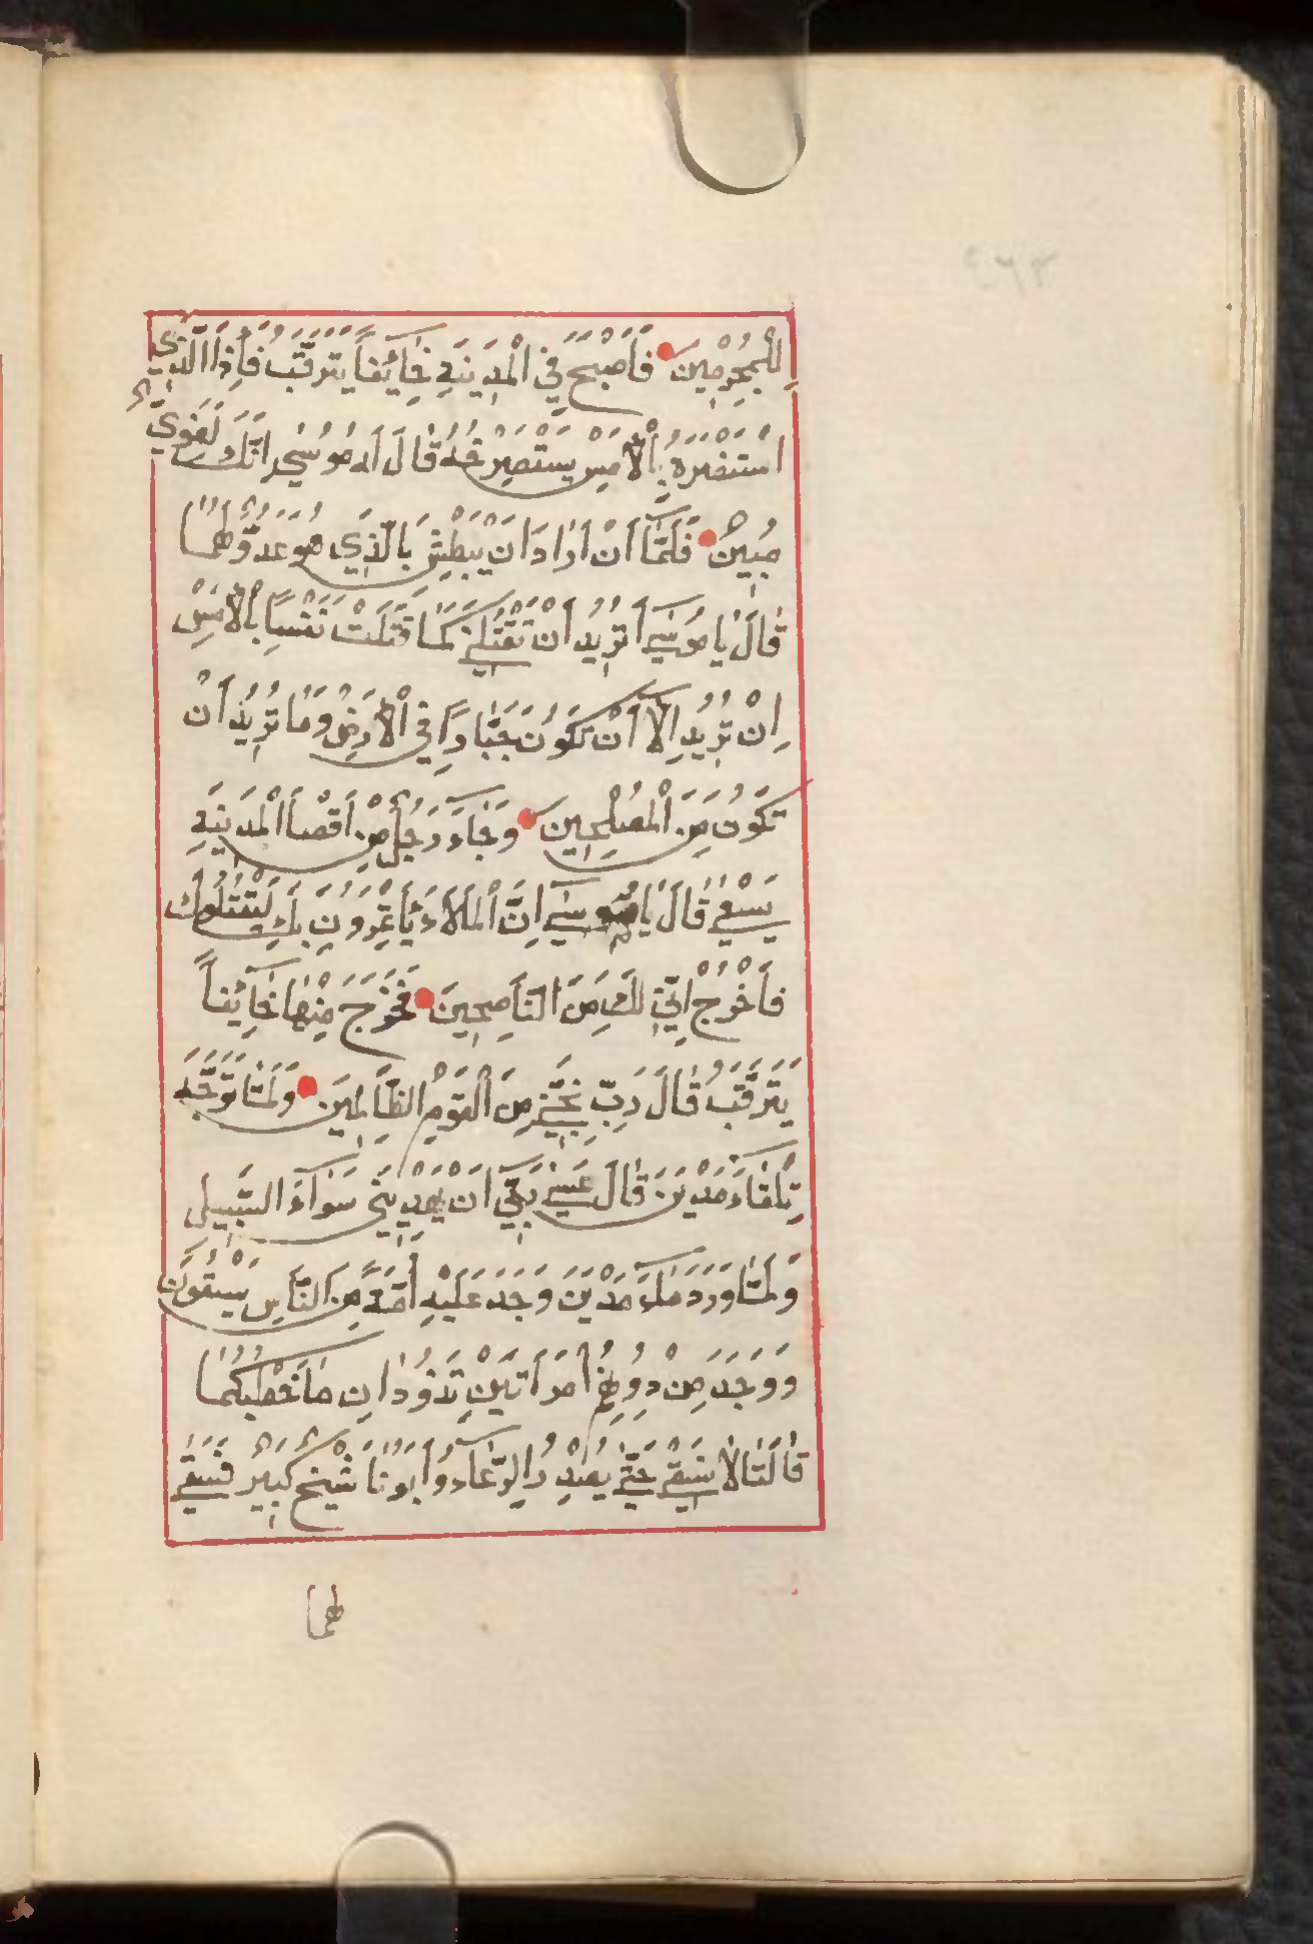 لِلْمُجْرِمِينَ فَأَصْبَحَ فِي الْمَدِينَةِ خَائِفاً يَتَرَقَّبُ فَإِذَا الَّذِي
اسْتَنْصَرَهُ بِالْأَمْسِ يَسْتَصْرِخُهُ قَالَ لَهُ مُوسَى إِنَّكَ لَغَوِيٌّ
مُبِينٌ فَلَمَّا أَنْ أَرَادَ أَنْ يَبْطِشَ بِالَّذِي هُوَ عَدُوٌّ لَهُمَا
قَالَ يَا مُوسَى أَتُرِيدُ أَنْ تَقْتُلَنِي كَمَا قَتَلْتَ نَفْساً بِالْأَمْسِ
إِنْ تُرِيدُ إِلَّا أَنْ تَكُونَ جَبَّاراً فِي الْأَرْضِ وَمَا تُرِيدُ أَنْ
تَكُونَ مِنَ الْمُصْلِحِينَ وَجَاءَ رَجُلٌ مِنْ أَقْصَا الْمَدِينَةِ
يَسْعَى قَالَ يَا مُوسَى إِنَّ الْمَلَأَ يَأْتَمِرُونَ بِكَ لِيَقْتُلُوكَ
فَاخْرُجْ إِنِّي لَكَ مِنَ النَّاصِحِينَ فَخَرَجَ مِنْهَا خَائِفاً
يَتَرَقَّبُ قَالَ رَبِّ نَجِّنِي مِنَ الْقَوْمِ الظَّالِمِينَ وَلَمَّا تَوَجَّهَ
تِلْقَاءَ مَدْيَنَ قَالَ عَسَى رَبِّي أَنْ يَهْدِيَنِي سَوَاءَ السَّبِيلِ
وَلَمَّا وَرَدَ مَاءَ مَدْيَنَ وَجَدَ عَلَيْهِ أُمَّةً مِنَ النَّاسِ يَسْقُونَ
وَوَجَدَ مِنْ دُونِهِمُ امْرَأَتَيْنِ تَذُودَانِ مَا خَطْبُكُمَا
قَالَتَا لَا نَسْقِي حَتَّى يُصْدِرَ الرِّعَاءُ وَأَبُونَا شَيْخٌ كَبِيرٌ فَسَقَى
لهما